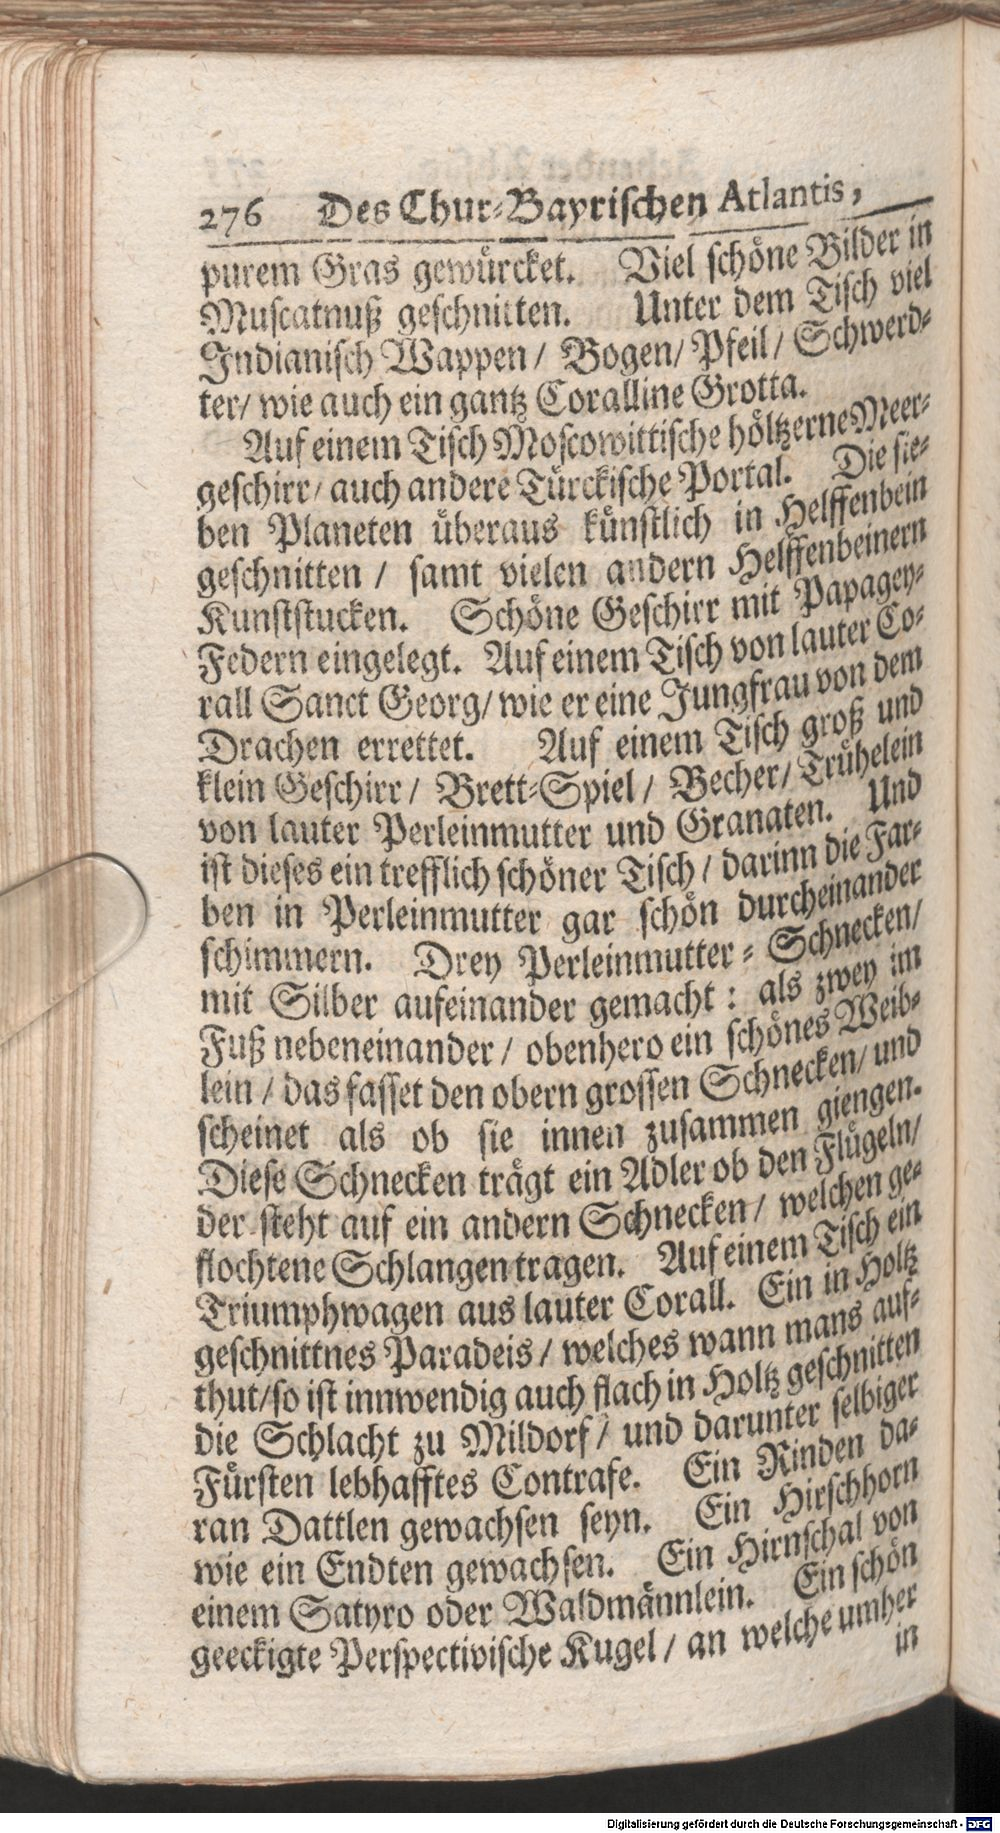 276 Des Chur-Bayrischen Atlantis,
purem Gras gewürcket. Viel schöne Bilder in
Muscatnuß geschnitten. Unter dem Tisch viel
Indianisch Wappen / Bogen / Pfeil / Schwerd-
ter / wie auch ein gantz Coralline Grotta.
Auf einem Tisch Moscowittische höltzerne Meer-
geschirr / auch andere Türckische Portal. Die sie-
ben Planeten überaus künstlich in Helffenbein
geschnitten / samt vielen andern Helffenbeinern
Kunststucken. Schöne Geschirr mit Papagey-
Federn eingelegt. Auf einem Tisch von lauter Co-
rall Sanct Georg / wie er eine Jungfrau von dem
Drachen errettet. Auf einem Tisch groß und
klein Geschirr / Brett-Spiel / Becher / Trühelein
von lauter Perleinmutter und Granaten. Und
ist dieses ein trefflich schöner Tisch / darinn die Far-
ben in Perleinmutter gar schön durcheinander
schimmern. Drey Perleinmutter-Schnecken /
mit Silber aufeinander gemacht : als zwey im
Fuß nebeneinander / obenhero ein schönes Weib-
lein / das fasset den obern grossen Schnecken / und
scheinet als ob sie innen zusammen giengen.
Diese Schnecken trägt ein Adler ob den Flügeln /
der steht auf ein andern Schnecken / welchen ge-
flochtene Schlangen tragen. Auf einem Tisch ein
Triumphwagen aus lauter Corall. Ein in Holtz
geschnittnes Paradeis / welches wann mans auf-
thut / so ist innwendig auch flach in Holtz geschnitten
die Schlacht zu Mildorf / und darunter selbiger
Fürsten lebhafftes Contrafe. Ein Rinden da-
ran Dattlen gewachsen seyn. Ein Hirschhorn
wie ein Endten gewachsen. Ein Hirnschal von
einem Satyro oder Waldmännlein. Ein schön
geeckigte Perspectivische Kugel / an welche umher
in
Digitalisierung gefördert durch die Deutsche Forschungsgemeinschaft - DFG